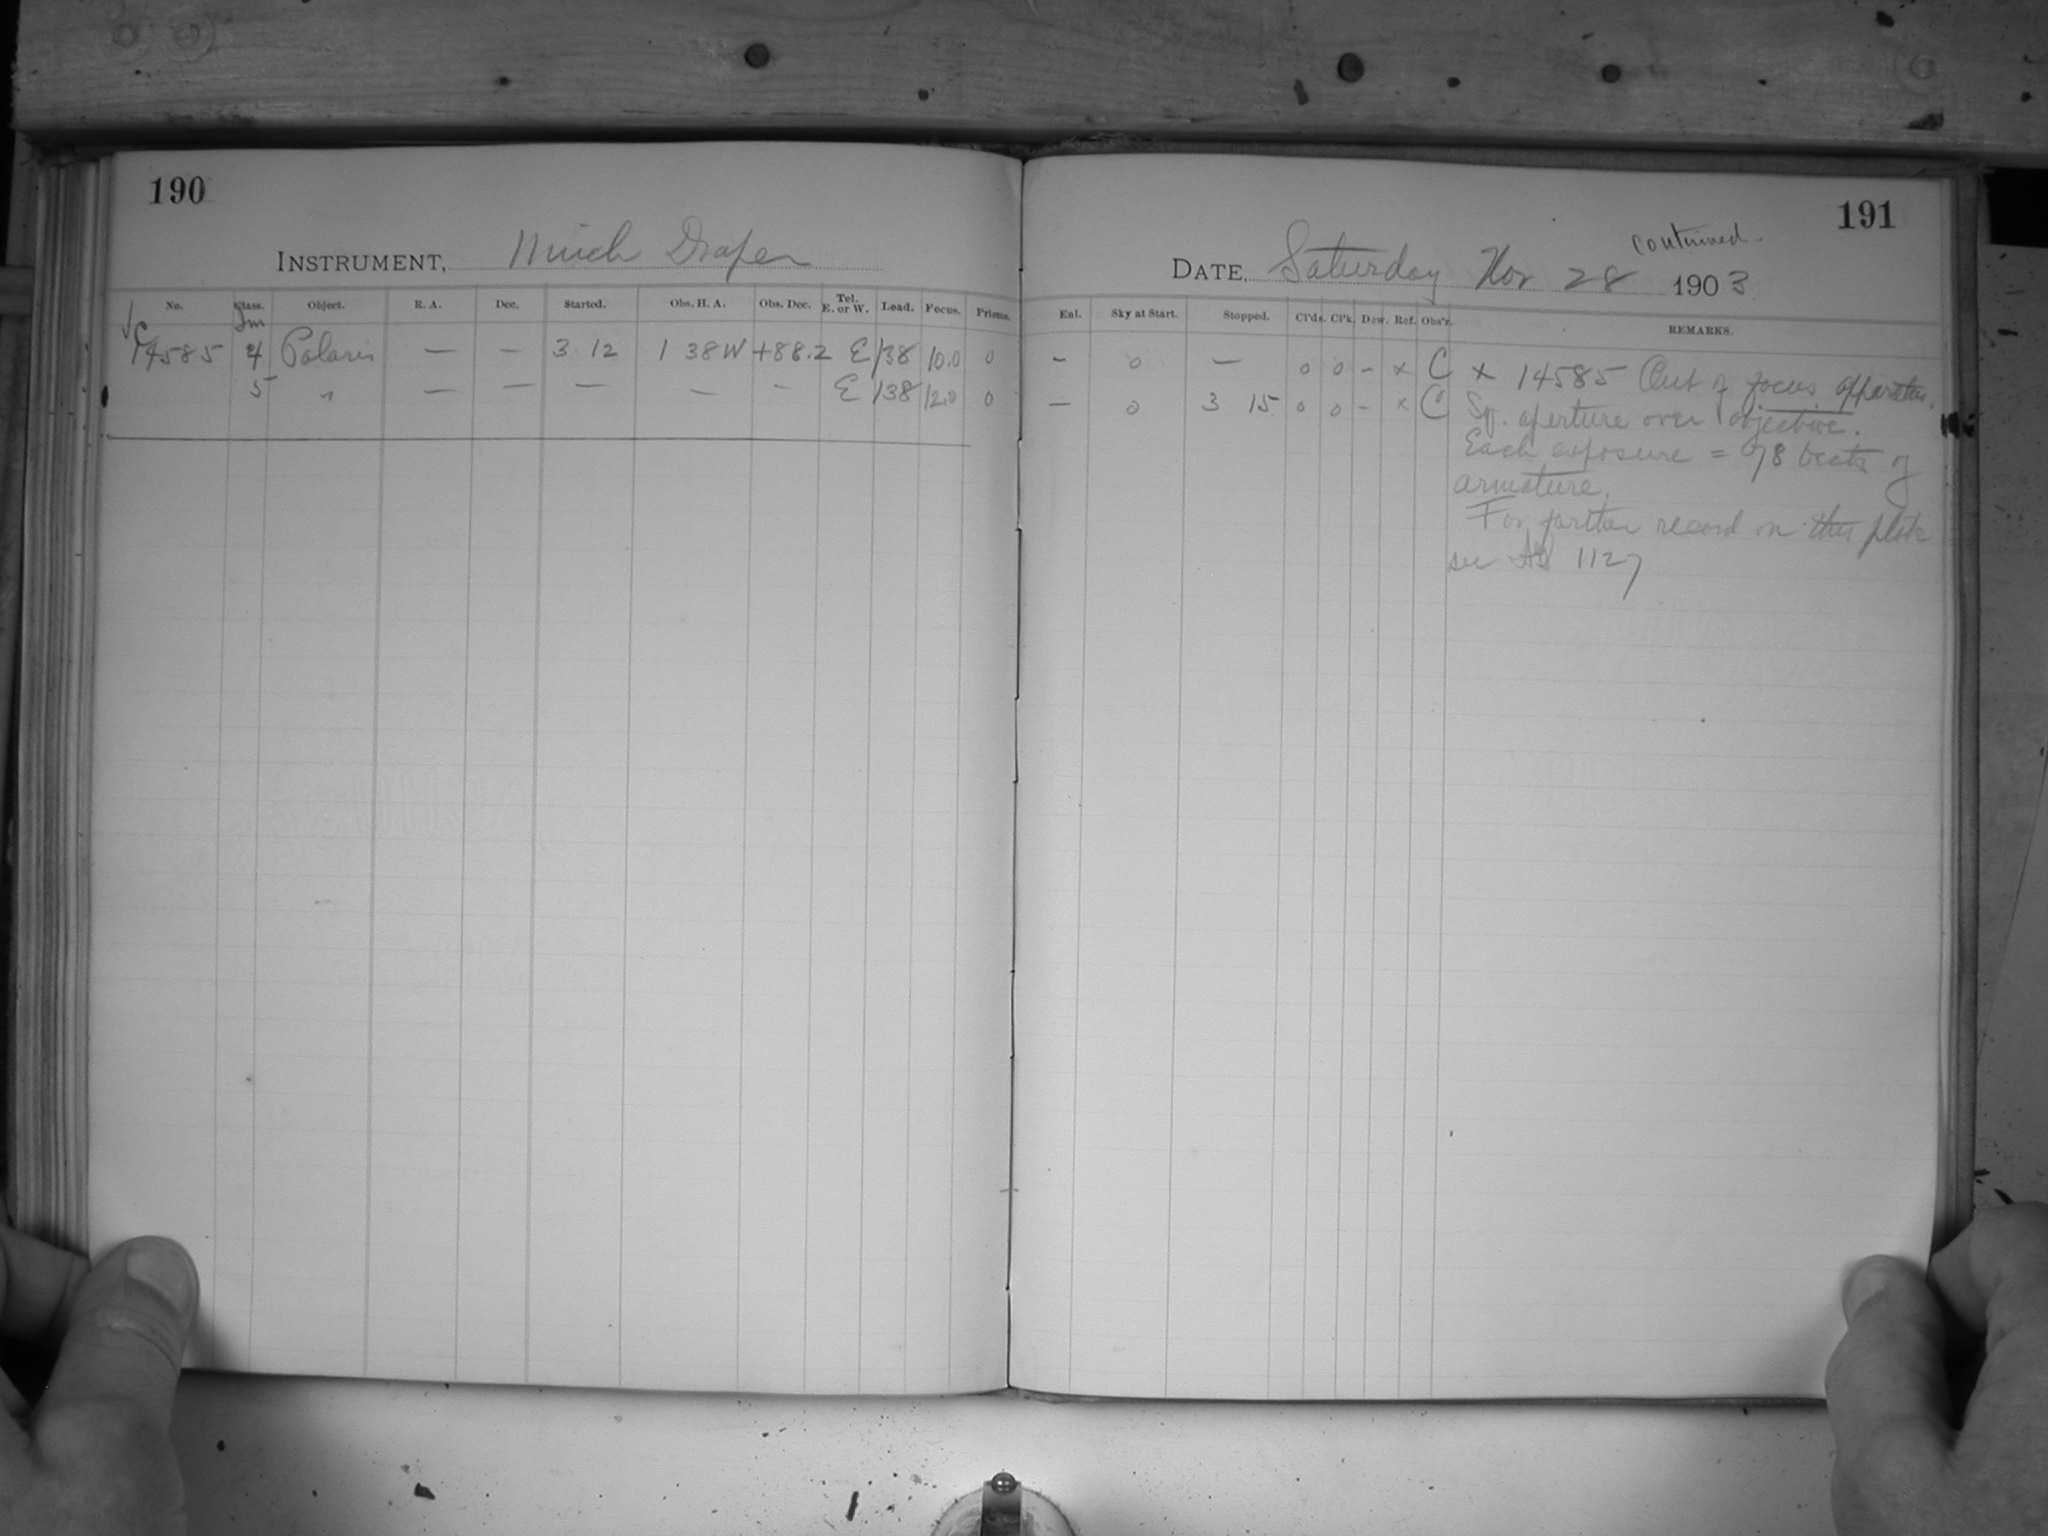 190
191
INSTRUMENT, 11 inch Draper
continued.
DATE, Saturday Nov 28 1903
No. Class. Object. R. A. Dec. Started. Obs. H. A. Obs. Dec. Tel. E. or W. Load. Focus. Prisms. Eal. Sky at Start. Stopped. Cl'ds. Cl'k. Dew. Ref. Obs'r. REMARKS.
14585 4 Polaris — — 3 12 1 38W +88.2 E 138 10.0 0 – 0 — 0 0 – x C x 14585 Out of focus apparatus.
5 " — — — — - E 138 12.0 0 — 0 3 15 0 0 – x C Sq. aperture over objective.
Each exposure = 78 beats of
armature.
For further record on this plate
see 1127